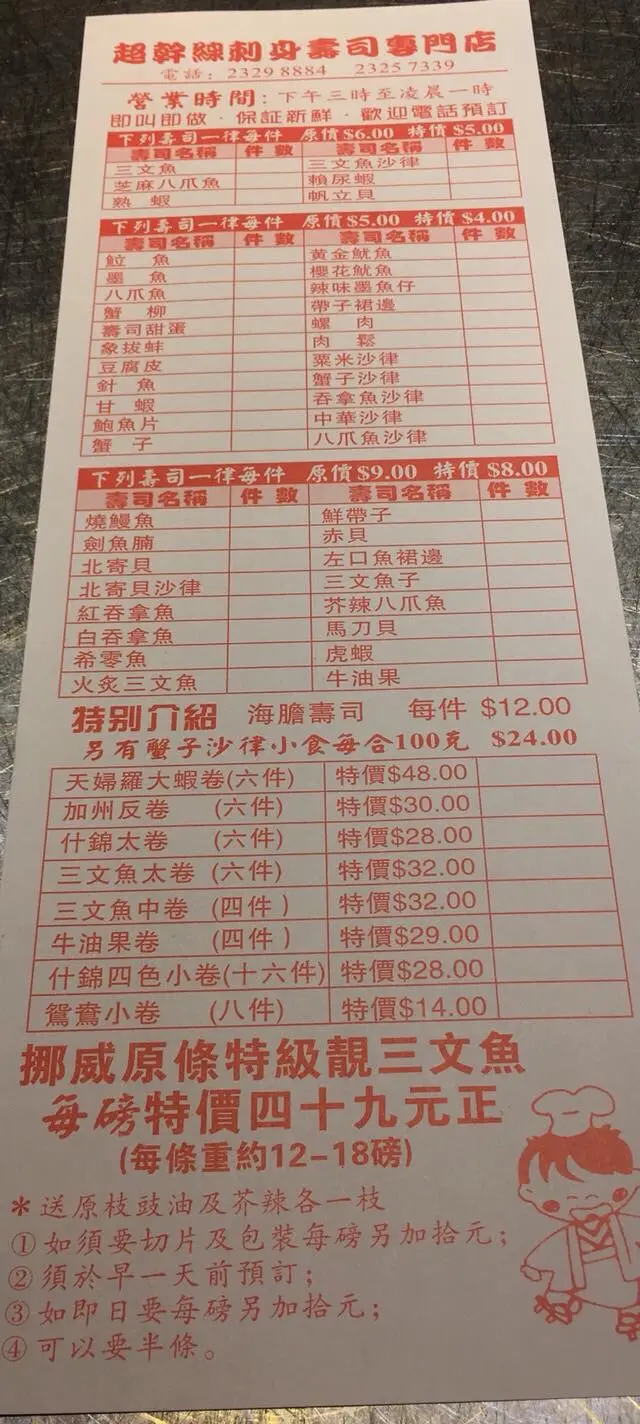 超幹線刺身壽司專門店
電話：2329 8884　2325 7339
營業時間：下午三時至凌晨一時
即叫即做．保証新鮮．歡迎電話預訂
下列壽司一律每件 原價$6.00 特價$5.00
壽司名稱 件數 壽司名稱 件數
三文魚 三文魚沙律
芝麻八爪魚 賴尿蝦
熟蝦 帆立貝
下列壽司一律每件 原價$5.00 特價$4.00
壽司名稱 件數 壽司名稱 件數
魚 黃金魷魚
墨魚 櫻花魷魚
八爪魚 辣味墨魚仔
蟹柳 帶子裙邊
壽司甜蛋 螺肉
象拔蚌 肉鬆
豆腐皮 粟米沙律
針魚 蟹子沙律
甘蝦 吞拿魚沙律
鮑魚片 中華沙律
蟹子 八爪魚沙律
下列壽司一律每件 原價$9.00 特價$8.00
壽司名稱 件數 壽司名稱 件數
燒鰻魚 鮮帶子
劍魚腩 赤貝
北寄貝 左口魚裙邊
北寄貝沙律 三文魚子
紅吞拿魚 芥辣八爪魚
白吞拿魚 馬刀貝
希零魚 虎蝦
火炙三文魚 牛油果
特別介紹 海膽壽司 每件 $12.00
另有蟹子沙律小食每合100克 $24.00
天婦羅大蝦卷(六件) 特價$48.00
加州反卷 (六件) 特價$30.00
什錦太卷 (六件) 特價$28.00
三文魚太卷 (六件) 特價$32.00
三文魚中卷 (四件) 特價$32.00
牛油果卷 (四件) 特價$29.00
什錦四色小卷(十六件) 特價$28.00
鴛鴦小卷 (八件) 特價$14.00
挪威原條特級靚三文魚
每磅特價四十九元正
(每條重約12-18磅)
*送原枝豉油及芥辣各一枝
①如須要切片及包裝每磅另加拾元；
②須於早一天前預訂；
③如即日要每磅另加拾元；
④可以要半條。